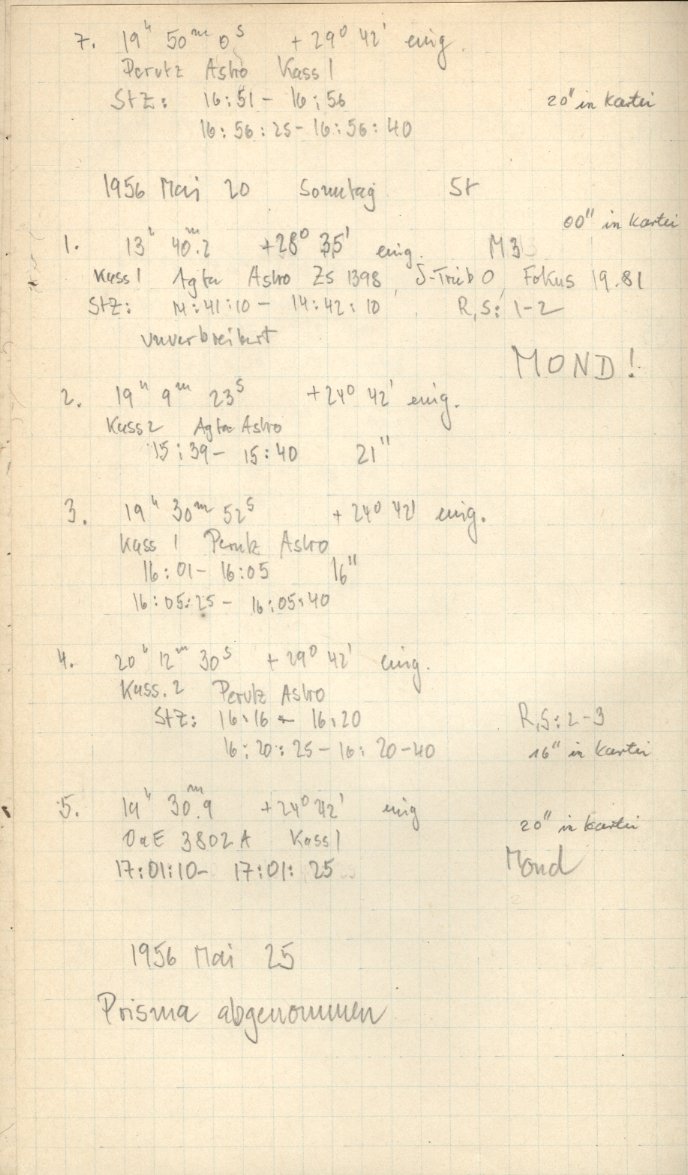 7. 19ʰ 50ᵐ 0ˢ +29° 42' einig.
Perutz Astro Kass 1
StZ: 16:51 - 16:56 20" in Kartei
16:56:25 - 16:56:40
1956 Mai 20 Sonntag St
00" in Kartei
1. 13ʰ 40ᵐ.2 +28° 35' einig. M3
Kass 1 Agfa Astro Zs 1398, S-Trieb 0, Fokus 19.81
StZ: 14:41:10 - 14:42:10 R,S: 1-2
unverbreitert
MOND!
2. 19ʰ 9ᵐ 23ˢ +24° 42' einig.
Kass 2 Agfa Astro
15:39 - 15:40 21"
3. 19ʰ 30ᵐ 52ˢ +24° 42' einig.
Kass 1 Perutz Astro
16:01 - 16:05 16"
16:05:25 - 16:05:40
4. 20ʰ 12ᵐ 30ˢ +29° 42' einig.
Kass. 2 Perutz Astro
StZ: 16:16 - 16:20 R,S: 2-3
16:20:25 - 16:20-40 16" in Kartei
5. 19ʰ 30ᵐ.9 +24° 42' einig
20" in Kartei
OaE 3802A Kass 1
17:01:10 - 17:01:25 Mond
1956 Mai 25
Prisma abgenommen